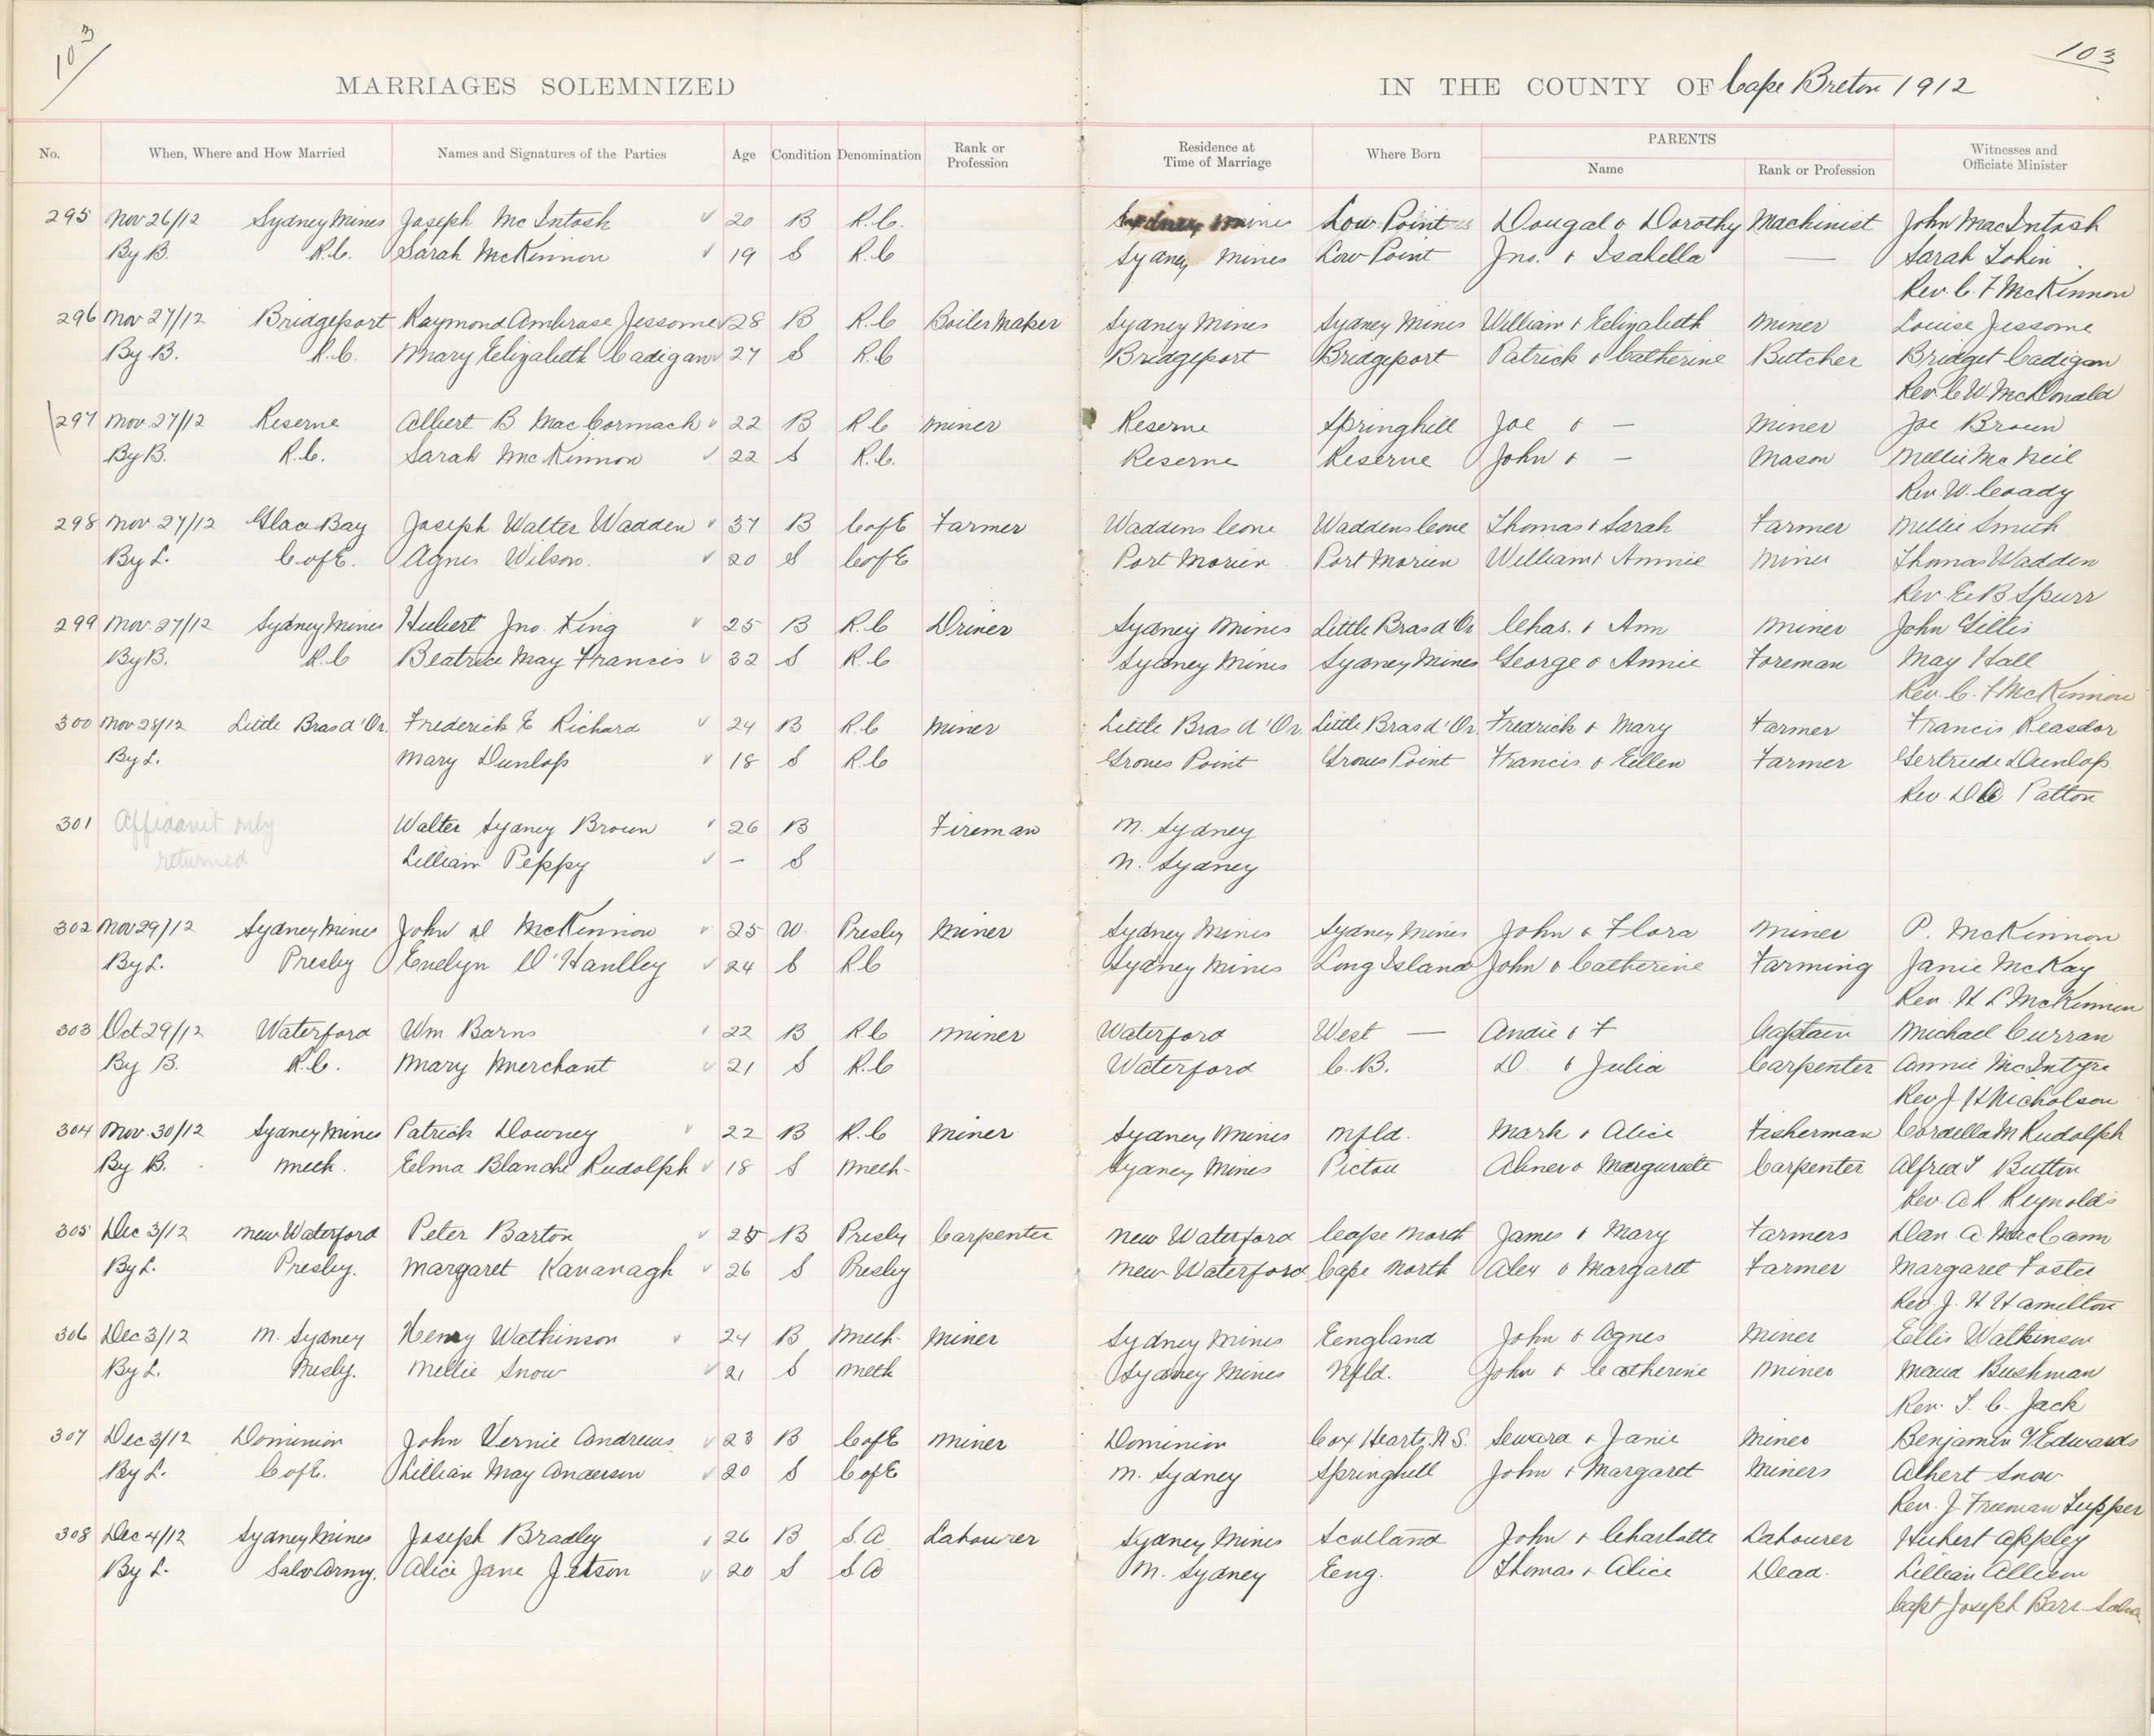 103
103
MARRIAGES SOLEMNIZED IN THE COUNTY OF Cape Breton 1912
No. When, Where and How Married Names and Signatures of the Parties Age Condition Denomination Rank or Profession Residence at Time of Marriage Where Born PARENTS Name Rank or Profession Witnesses and Officiate Minister
295 Nov 26/12 Sydney Mines Joseph McIntosh 20 B R.C. Sydney Mines Low Point Dougal & Dorothy Machinist John MacIntosh
By B. R.C. Sarah McKinnon 19 S R.C Sydney Mines Low Point Jno. & Isabella — Sarah Tobin
Rev. C. F McKinnon
296 Nov 27/12 Bridgeport Raymond Ambrose Jessome 28 B R.C Boiler Maker Sydney Mines Sydney Mines William & Elizabeth Miner Louise Jessome
By B. R.C. Mary Elizabeth Cadigan 27 S R.C Bridgeport Bridgeport Patrick & Catherine Butcher Bridget Cadigan
Rev. C W McDonald
297 Nov. 27/12 Reserve Albert B MacCormack 22 B R C Miner Reserve Springhill Joe & — Miner Joe Brown
By B. R.C. Sarah McKinnon 22 S R.C. Reserve Reserve John & — Mason Mellie McNeil
Rev. W. Coady
298 Nov 27/12 Glace Bay Joseph Walter Wadden 37 B C of E Farmer Waddens Cove Waddens Cove Thomas & Sarah Farmer Nellie Smith
By L. C of E. Agnes Wilson. 20 S C of E Port Morien Port Morien William & Annie Miner Thomas Wadden
Rev E B Spurr
299 Nov. 27/12 Sydney Mines Hubert Jno. King 25 B R.C Driver Sydney Mines Little Bras d'Or Chas. & Ann Miner John Gillis
By B. R.C Beatrice May Francis 32 S R.C Sydney Mines Sydney Mines George & Annie Foreman May Hall
Rev. C. F McKinnon
300 Nov 28/12 Little Bras d'Or. Frederick E Richard 24 B R.C Miner Little Bras d'Or. Little Bras d'Or. Fredrick & Mary Farmer Francis Reasdor
By L. Mary Dunlop 18 S R.C Groves Point Groves Point Francis & Ellen Farmer Gertrude Dunlop
Rev. Patton
301 Affidavit only Walter Sydney Brown 26 B Fireman N. Sydney
returned Lilliam Peppy — S N. Sydney
302 Nov 29/12 Sydney Mines John D McKinnon 25 W. Presby Miner Sydney Mines Sydney Mines John & Flora Miner P. McKinnon
By L. Presby Evelyn O'Handley 24 S R.C Sydney Mines Long Island John & Catherine Farming Janie McKay
Rev. H L McKinnon
303 Oct 29/12 Waterford Wm Barns 22 B R.C Miner Waterford West — Andie & F Captain Michael Curran
By B. R.C. Mary Merchant 21 S R.C Waterford C.B. D. & Julia Carpenter Annie McIntyre
Rev J H Nicholson
304 Nov. 30/12 Sydney Mines Patrick Downey 22 B R.C Miner Sydney Mines Nfld. Mark & Alice Fisherman Cordella M Rudolph
By B. Meth. Elma Blanche Rudolph 18 S Meth. Sydney Mines Pictou Abner & Marguerite Carpenter Alfred T Button
Rev. A R Reynolds
305 Dec 3/12 New Waterford Peter Barton 25 B Presby Carpenter New Waterford Cape North James & Mary Farmers Dan. A MacCann
By L. Presby. Margaret Kavanagh 26 S Presby New Waterford Cape North Alex & Margaret Farmer Margaret Foster
Rev. J. H Hamilton
306 Dec 3/12 N. Sydney Henry Watkinson 24 B Meth Miner Sydney Mines England John & Agnes Miner Ellis Watkinson
By L. Presby. Mellie Snow 21 S Meth Sydney Mines Nfld. John & Catherine Miner Maud Bushman
Rev. T. C. Jack
307 Dec 3/12 Dominion John Vernie Andrews 23 B C of E Miner Dominion Cox Hearts, N.S. Seward & Janie Miner Benjamin Edwards
By L. C of E. Lillian May Anderson 20 S C of E N. Sydney Springhill John & Margaret Miners Albert Snow
Rev. J. Freeman Tupper
308 Dec 4/12 Sydney Mines Joseph Bradley 26 B S. A. Labourer Sydney Mines Scotland John & Charlotte Labourer Hubert Appley
By L. Salv. Army. Alice Jane Jetson 20 S S A N. Sydney Eng. Thomas & Alice Dead. Lillian Allison
Capt Joseph Barr.